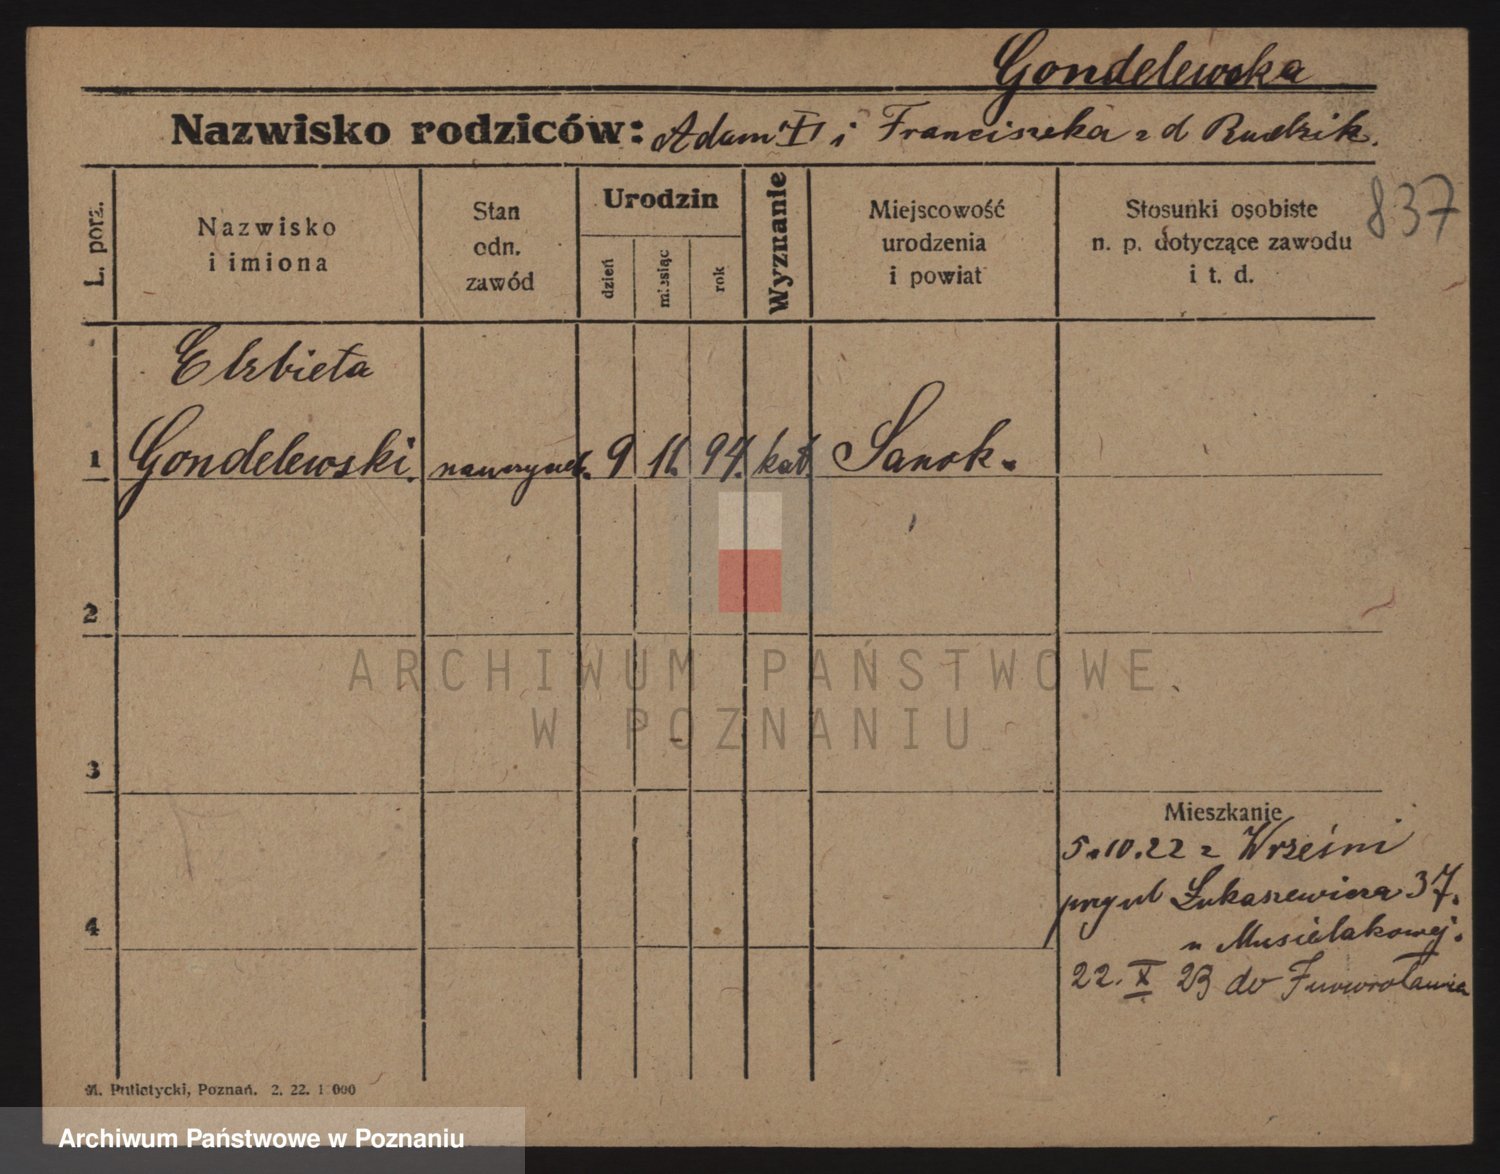 Gondelewska
Nazwisko rodziców: Adam i Franciszka z d Rudzik.
837
L. porz.
Nazwisko
i imiona
Stan
odn.
zawód
Urodzin
dzień
miesiąc
rok
Wyznanie
Miejscowość
urodzenia
i powiat
Stosunki osobiste
n. p. dotyczące zawodu
i t. d.
Elzbieta
1 Gondelewski. nauczyciel. 9 11. 94. kat. Sanok.
2
3
4
Mieszkanie
5.10.22 z Wrześni
przy ul Łukaszewicza 37.
u Musielakowej.
22. X 23 do Inowrocławia
Putiatycki, Poznań. 2. 22. 1 000
ARCHIWUM PAŃSTWOWE
W POZNANIU
Archiwum Państwowe w Poznaniu